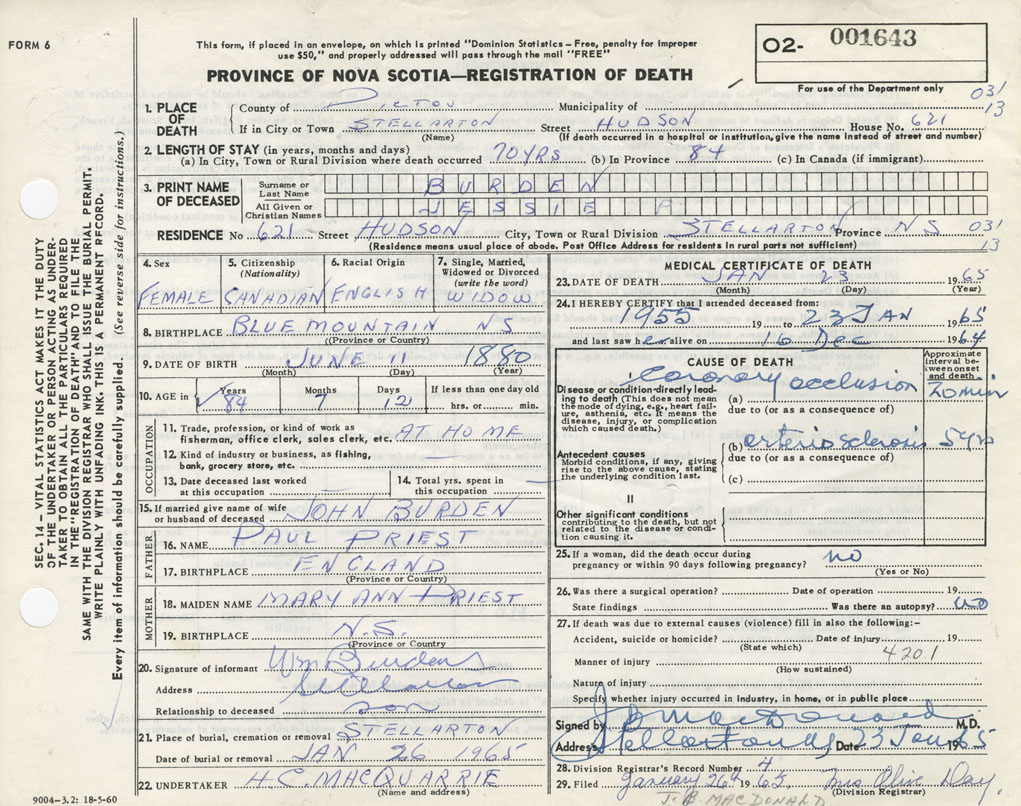 FORM 6
This form, if placed in an envelope, on which is printed "Dominion Statistics – Free, penalty for improper
use $50," and properly addressed will pass through the mail "FREE"
O2- 001643
For use of the Department only
PROVINCE OF NOVA SCOTIA—REGISTRATION OF DEATH
031
13
1. PLACE OF DEATH
County of PICTOU Municipality of
If in City or Town STELLARTON Street HUDSON House No. 621
(Name) (If death occurred in a hospital or institution, give the name instead of street and number)
2. LENGTH OF STAY (in years, months and days)
(a) In City, Town or Rural Division where death occurred 70 YRS (b) In Province 84 (c) In Canada (if immigrant)
3. PRINT NAME OF DECEASED
Surname or Last Name BURDEN
All Given or Christian Names JESSIE P
RESIDENCE No 621 Street HUDSON City, Town or Rural Division STELLARTON Province N S
031
13
(Residence means usual place of abode. Post Office Address for residents in rural parts not sufficient)
4. Sex 5. Citizenship (Nationality) 6. Racial Origin 7. Single, Married, Widowed or Divorced (write the word)
FEMALE CANADIAN ENGLISH WIDOW
8. BIRTHPLACE BLUE MOUNTAIN NS
(Province or Country)
9. DATE OF BIRTH JUNE 11 1880
(Month) (Day) (Year)
10. AGE in Years Months Days If less than one day old
84 7 12 hrs. or min.
OCCUPATION
11. Trade, profession, or kind of work as
fisherman, office clerk, sales clerk, etc. AT HOME
12. Kind of industry or business, as fishing,
bank, grocery store, etc. —
13. Date deceased last worked
at this occupation
14. Total yrs. spent in
this occupation
15. If married give name of wife
or husband of deceased JOHN BURDEN
FATHER
16. NAME PAUL PRIEST
17. BIRTHPLACE ENGLAND
(Province or Country)
MOTHER
18. MAIDEN NAME MARY ANN PRIEST
19. BIRTHPLACE N.S.
(Province or Country)
20. Signature of informant Wm Burden
Address Stellarton
Relationship to deceased son
21. Place of burial, cremation or removal STELLARTON
Date of burial or removal JAN 26 1965
22. UNDERTAKER H.C. MACQUARRIE
(Name and address)
MEDICAL CERTIFICATE OF DEATH
23. DATE OF DEATH JAN 23 1965
(Month) (Day) (Year)
24. I HEREBY CERTIFY that I attended deceased from:
1955 19 to 23 JAN 1965
and last saw her alive on 16 Dec 1964
CAUSE OF DEATH
Approximate interval between onset and death
Disease or condition directly leading to death (This does not mean the mode of dying, e.g., heart failure, asthenia, etc. It means the disease, injury, or complication which caused death.)
(a) coronary occlusion 20 min
due to (or as a consequence of)
Antecedent causes
Morbid conditions, if any, giving rise to the above cause, stating the underlying condition last.
(b) arteriosclerosis 5 yrs
due to (or as a consequence of)
(c)
II
Other significant conditions
contributing to the death, but not related to the disease or condition causing it.
25. If a woman, did the death occur during
pregnancy or within 90 days following pregnancy? no
(Yes or No)
26. Was there a surgical operation? Date of operation 19
State findings Was there an autopsy? no
27. If death was due to external causes (violence) fill in also the following:–
Accident, suicide or homicide? Date of injury 19
(State which) 420.1
Manner of injury
(How sustained)
Nature of injury
Specify whether injury occurred in industry, in home, or in public place
Signed by J B MacDonald M.D.
Address Stellarton Date 23 Jan 1965
28. Division Registrar's Record Number 4
29. Filed January 26th 1965 Mrs Olive Day
(Division Registrar)
J. B. MACDONALD
SEC. 14 – VITAL STATISTICS ACT MAKES IT THE DUTY
OF THE UNDERTAKER OR PERSON ACTING AS UNDER-
TAKER TO OBTAIN ALL THE PARTICULARS REQUIRED
IN THE "REGISTRATION OF DEATH" AND TO FILE THE
SAME WITH THE DIVISION REGISTRAR WHO SHALL ISSUE THE BURIAL PERMIT.
WRITE PLAINLY WITH UNFADING INK. THIS IS A PERMANENT RECORD.
Every item of information should be carefully supplied. (See reverse side for instructions.)
9004-3.2: 18-5-60